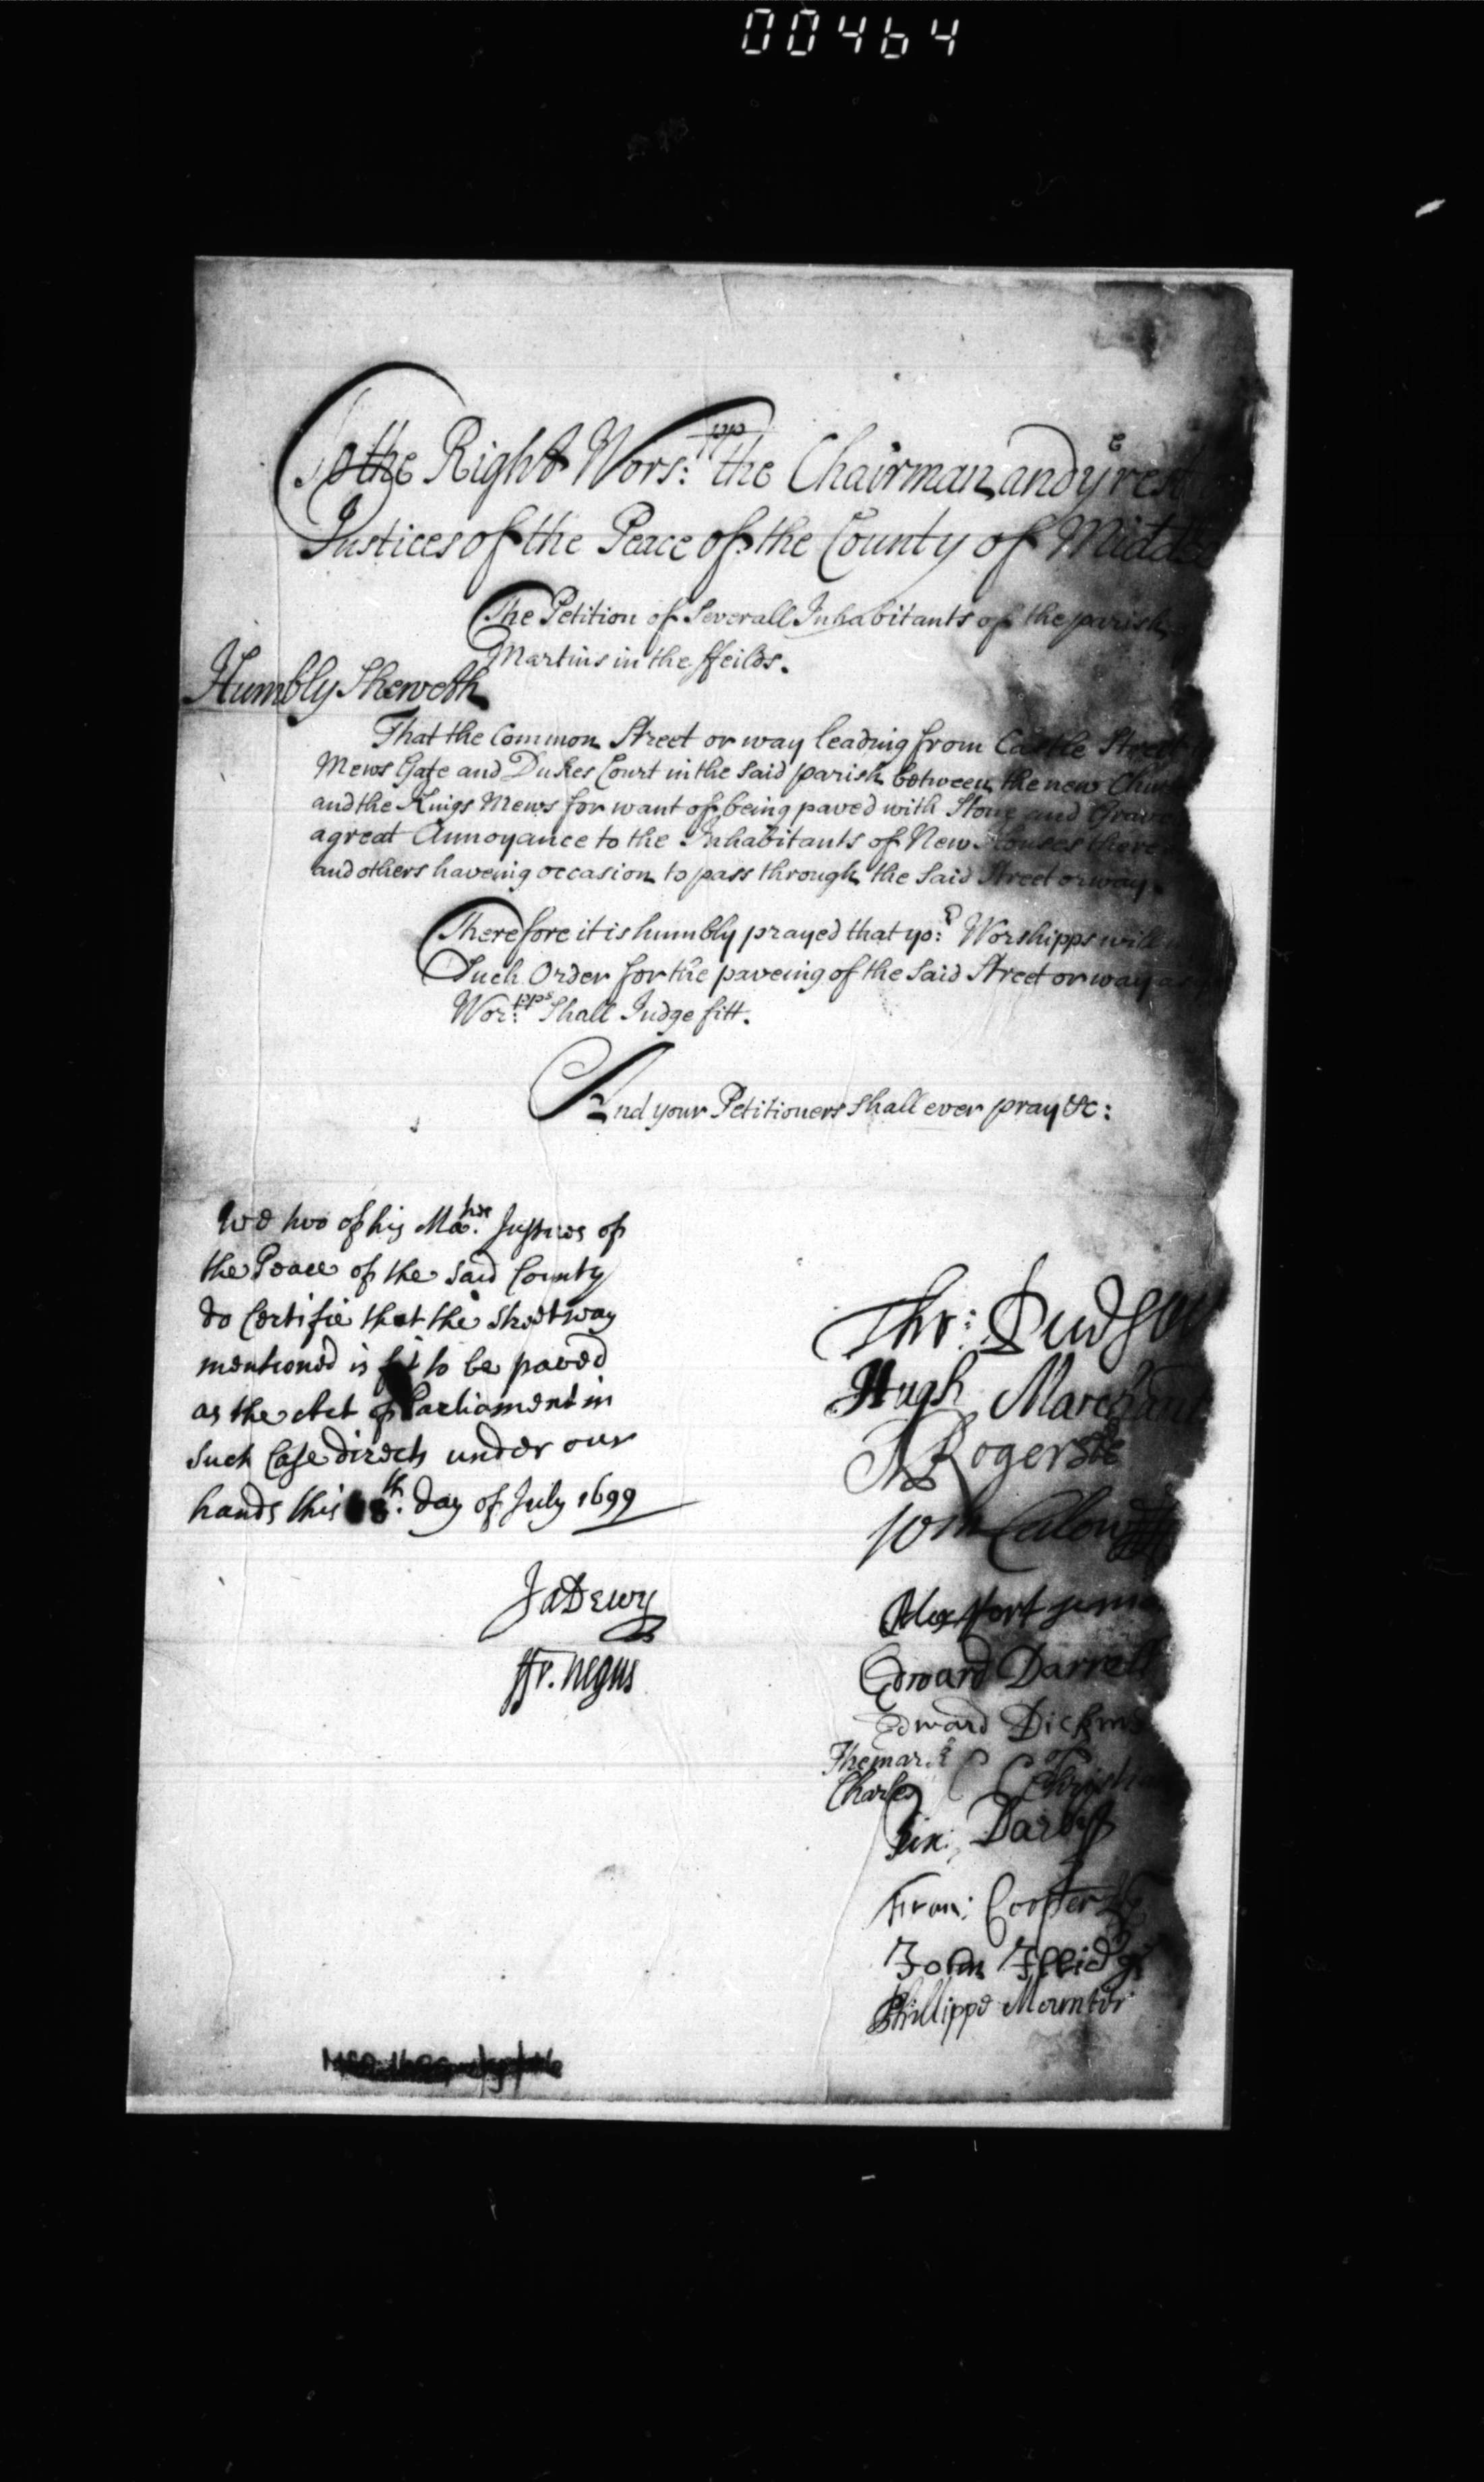 00464
To the Right Wors:pp the Chairman and ye rest
Justices of the Peace of the County of Midd
The Petition of Severall Inhabitants of the parish
Martins in the ffeilds.
Humbly Sheweth
That the Common Street or way leading from Castle Street
Mews Gate and Dukes Court in the Said parish between the new Chur
and the Kings Mews for want of being paved with Stone and Grave
a great Annoyance to the Inhabitants of New Houses there
and others haveing occasion to pass through the Said Street or way.
Therefore it is humbly prayed that yo:r Worshipps will
Such Order for the paveing of the Said Street or way as
Wor:pps Shall Judge fitt.
And your Petitioners shall ever pray &c:
We two of his Ma:ties Justices of
the Peace of the said County
do Certifie that the street way
mentioned is fit to be paved
as the Act of Parliament in
such Case directs under our
hands this th. day of July 1699
Ja Dewy
ffr. Negus
Thr: Judson
Hugh Marchant
Rogers
John
Alex ffort
Edward Darrell
Edward Dickins
The mark of
Charles Christian
Darby
Fran: Cooper
John
Phillippe Mounter